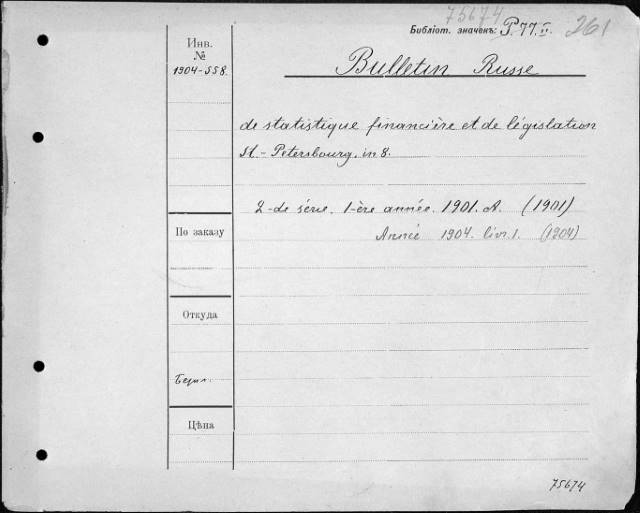 75674
Библіот. значекъ: P. 77. II. 261
Инв.
№
1904-558.
Bulletin Russe
de statistique financière et de législation
St.-Petersbourg. in 8.
2-de série. 1-ère année. 1901. A. (1901)
По заказу
Année 1904. livr. 1. (1904)
Откуда
Берл.
Цѣна
75674